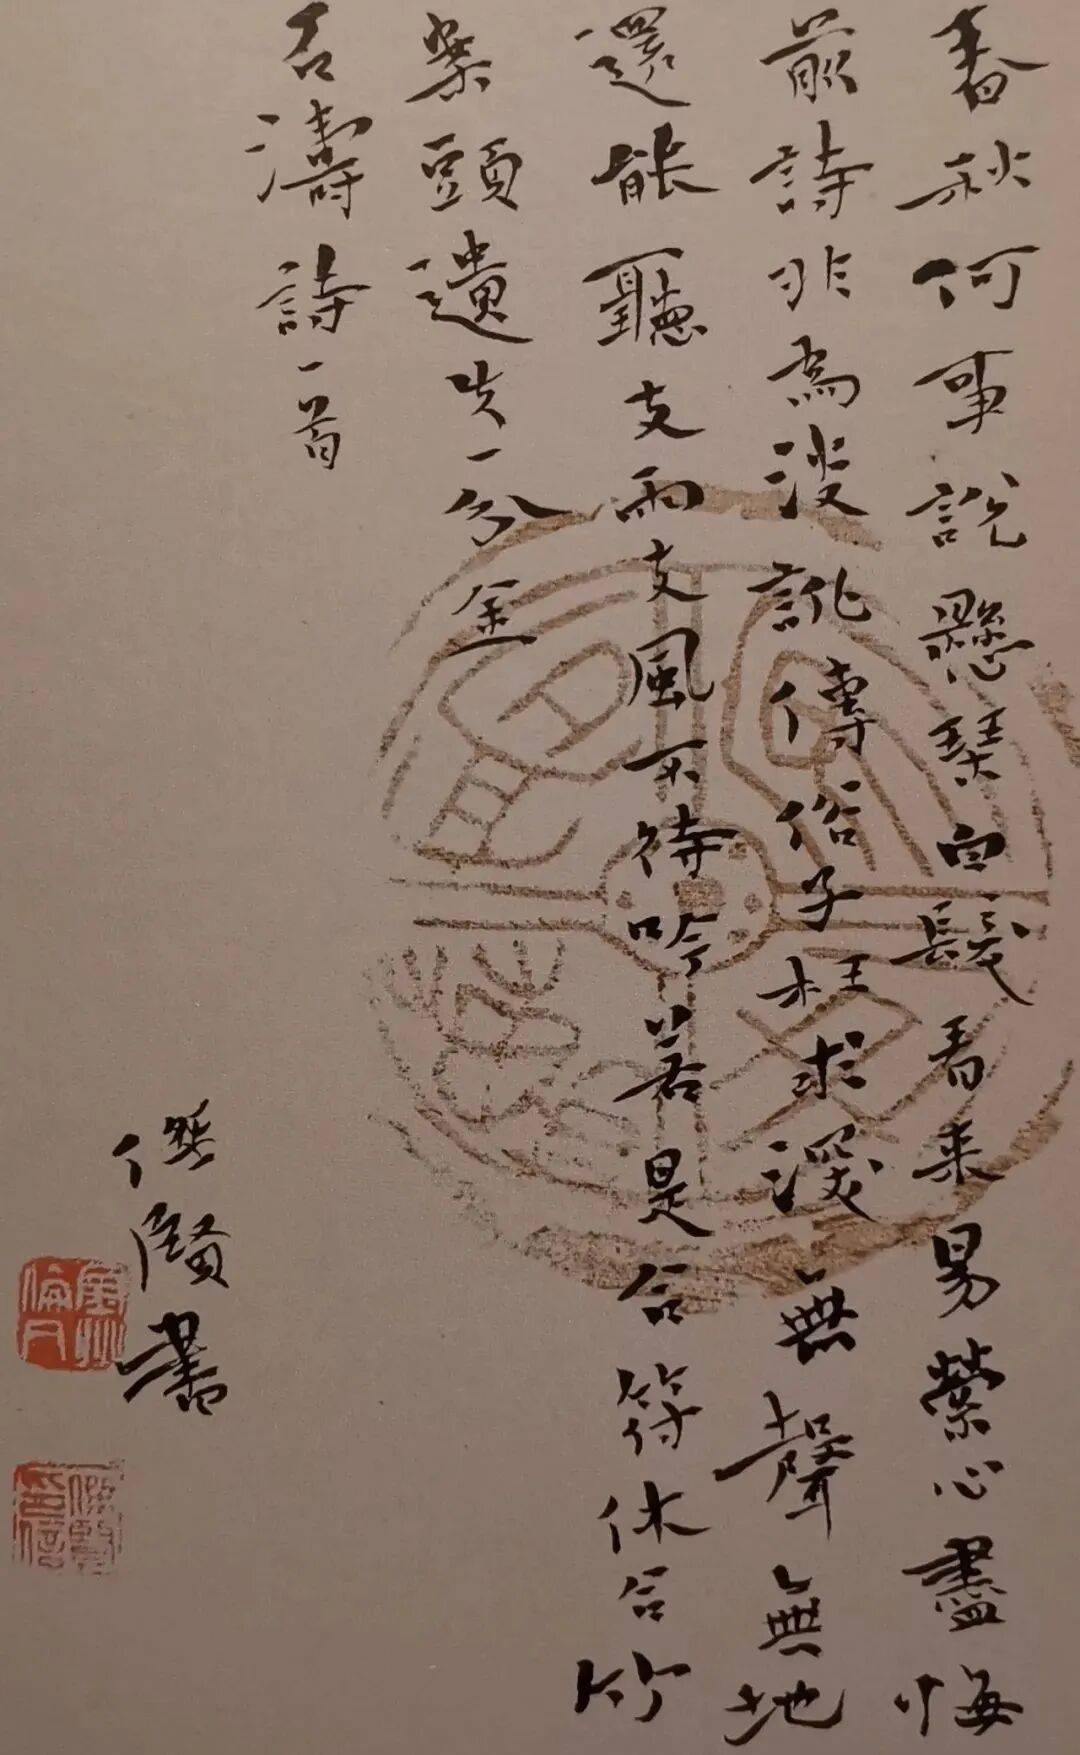 春秋何事說懸琴白髮看来易縈心盡悔
前詩非為淡訛傳俗子枉求深無聲無地
還能聽支雨支風不待吟若是合符休合竹
案頭遺失一分金
石濤詩一首
傑賢書